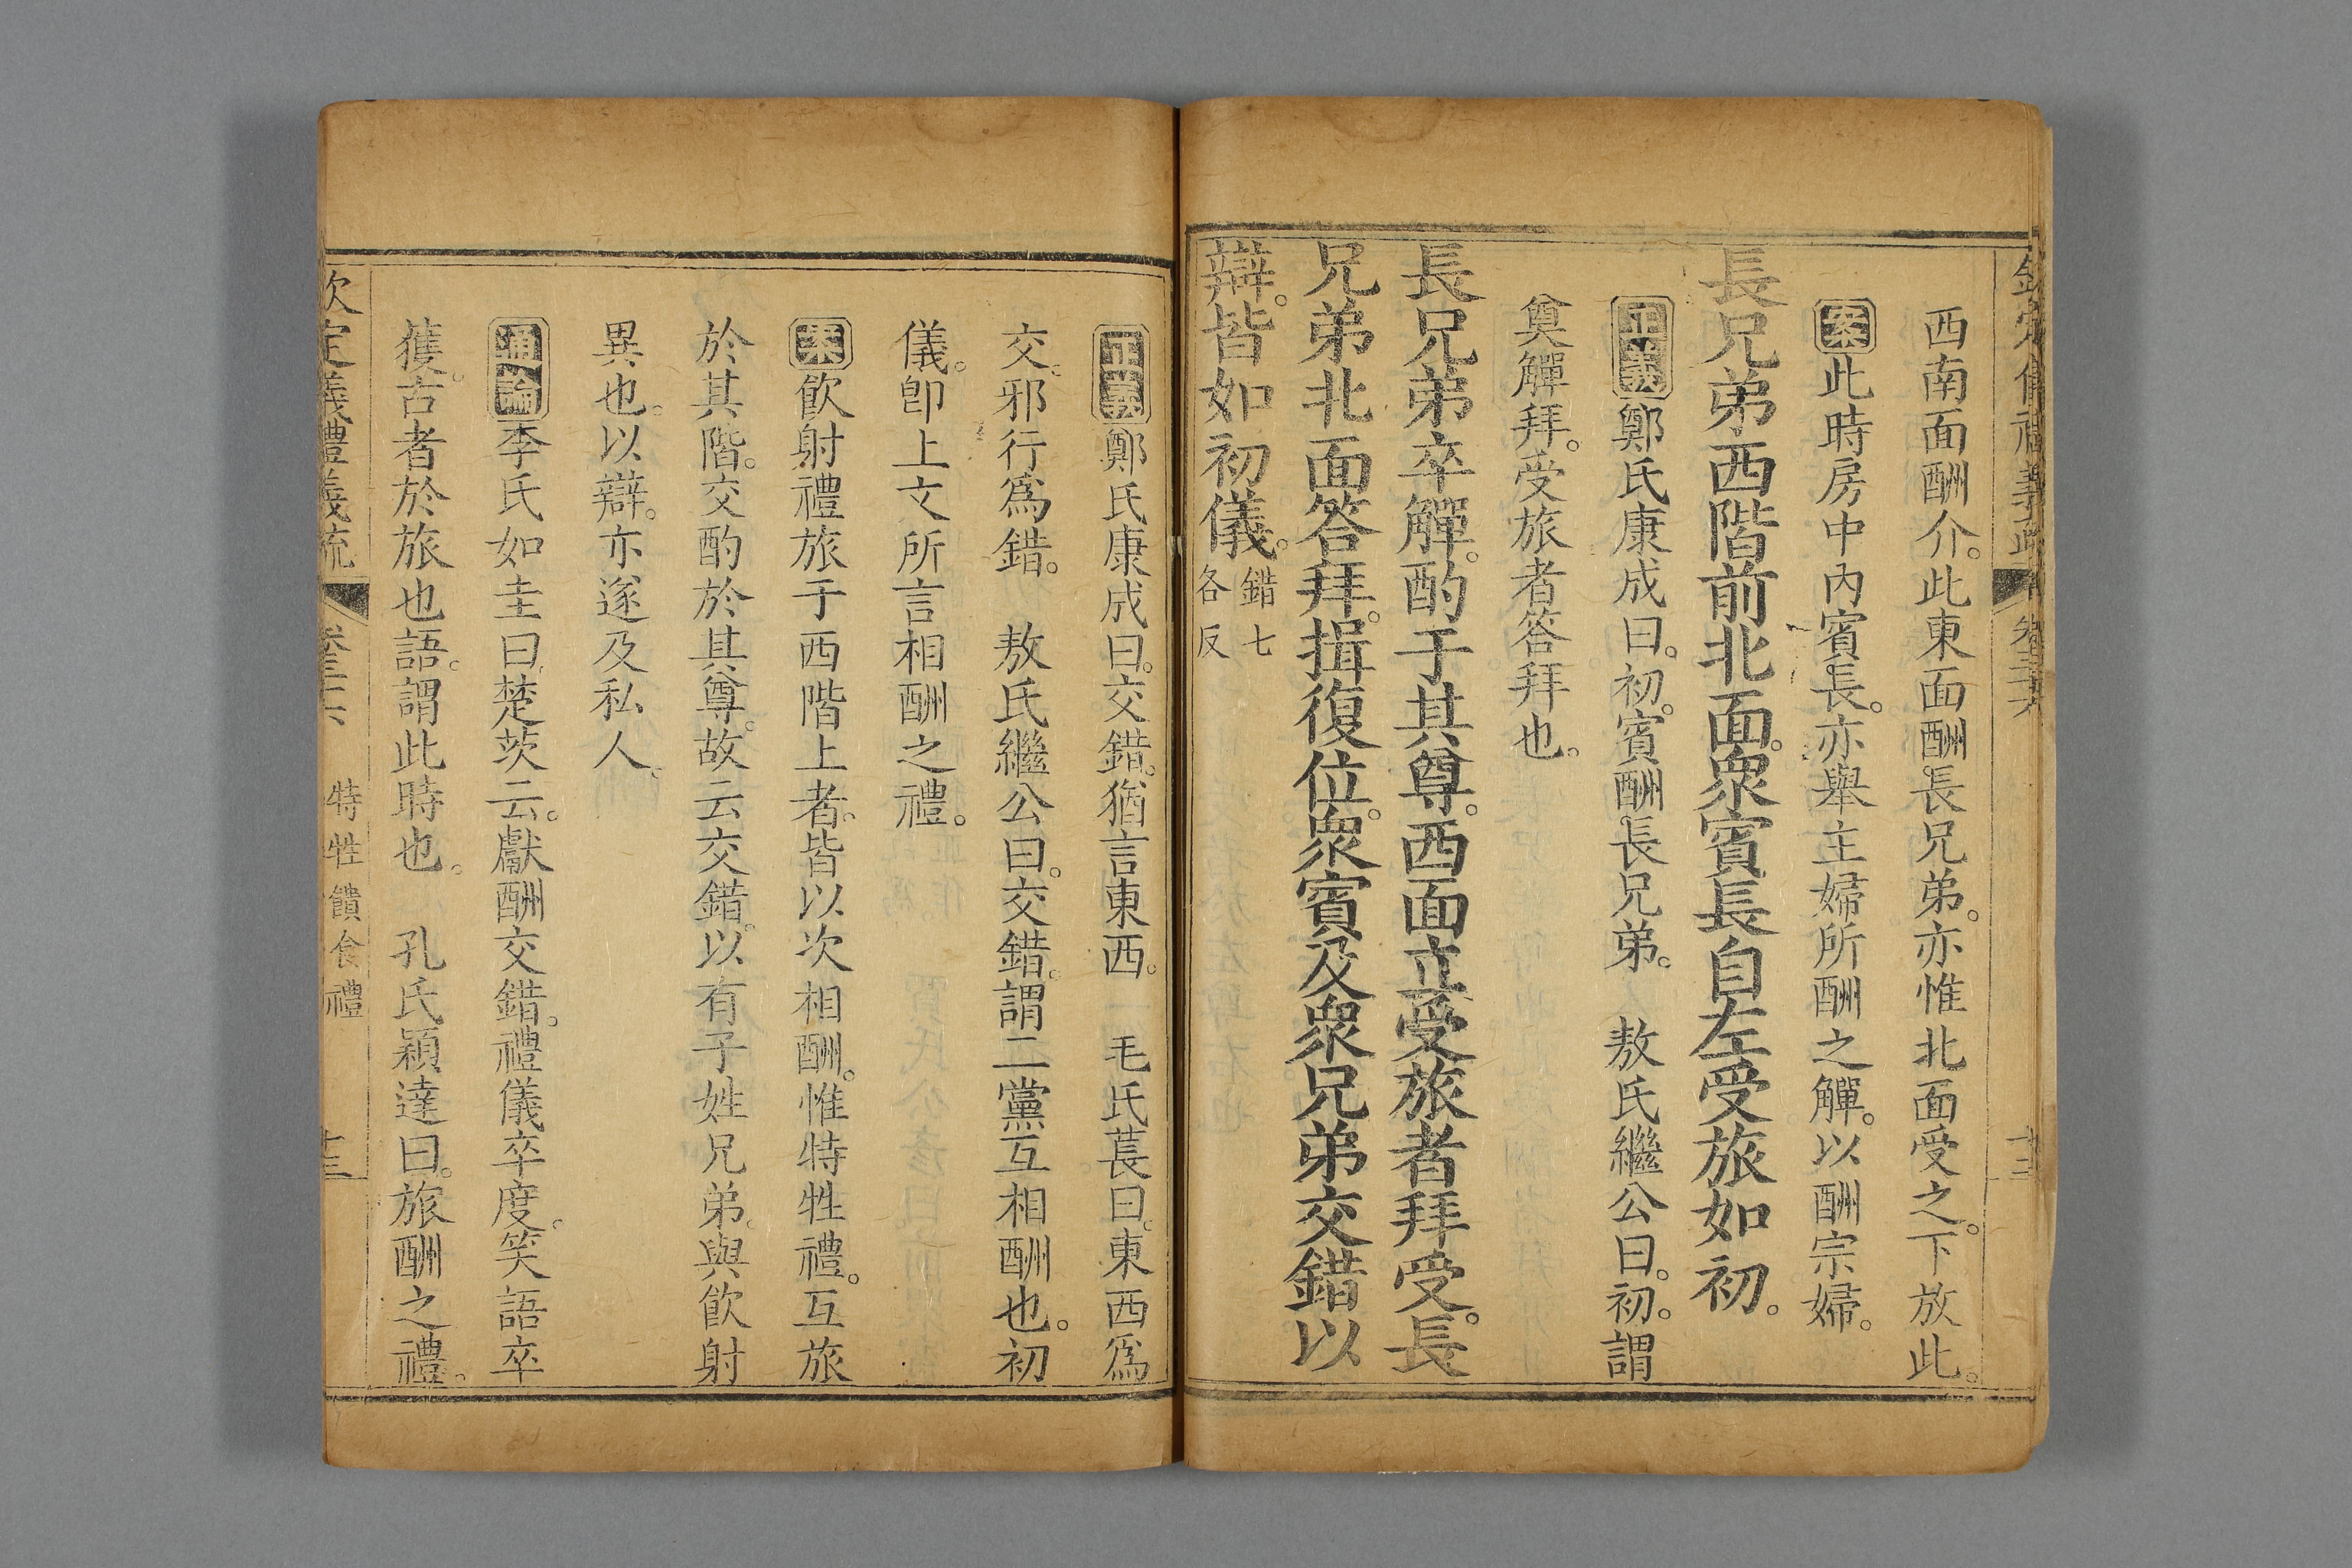 西南面酬介。此東面酬長兄弟。亦惟北面受之。下放此。
案此時房中內賓長。亦舉主婦所酬之觶。以酬宗婦。
長兄弟西階前北面。衆賓長自左受旅如初。
正義鄭氏康成曰。初。賓酬長兄弟。 敖氏繼公曰。初。謂
奠觶拜。受旅者答拜也。
長兄弟卒觶。酌于其尊。西面立。受旅者拜受。長
兄弟北面答拜。揖復位。衆賓及衆兄弟交錯以
辯。皆如初儀。錯七各反
正義鄭氏康成曰。交錯。猶言東西。 毛氏萇曰。東西爲
交。邪行爲錯。 敖氏繼公曰。交錯。謂二黨互相酬也。初
儀。卽上文所言相酬之禮。
案飮射禮旅于西階上者。皆以次相酬。惟特牲禮。互旅
於其階。交酌於其尊。故云交錯。以有子姓兄弟。與飮射
異也。以辯。亦遂及私人。
通論李氏如圭曰。楚茨云。獻酬交錯。禮儀卒度。笑語卒
獲。古者於旅也語。謂此時也。 孔氏穎達曰。旅酬之禮。
欽定義禮義疏 卷三十六 特牲饋食禮 十三